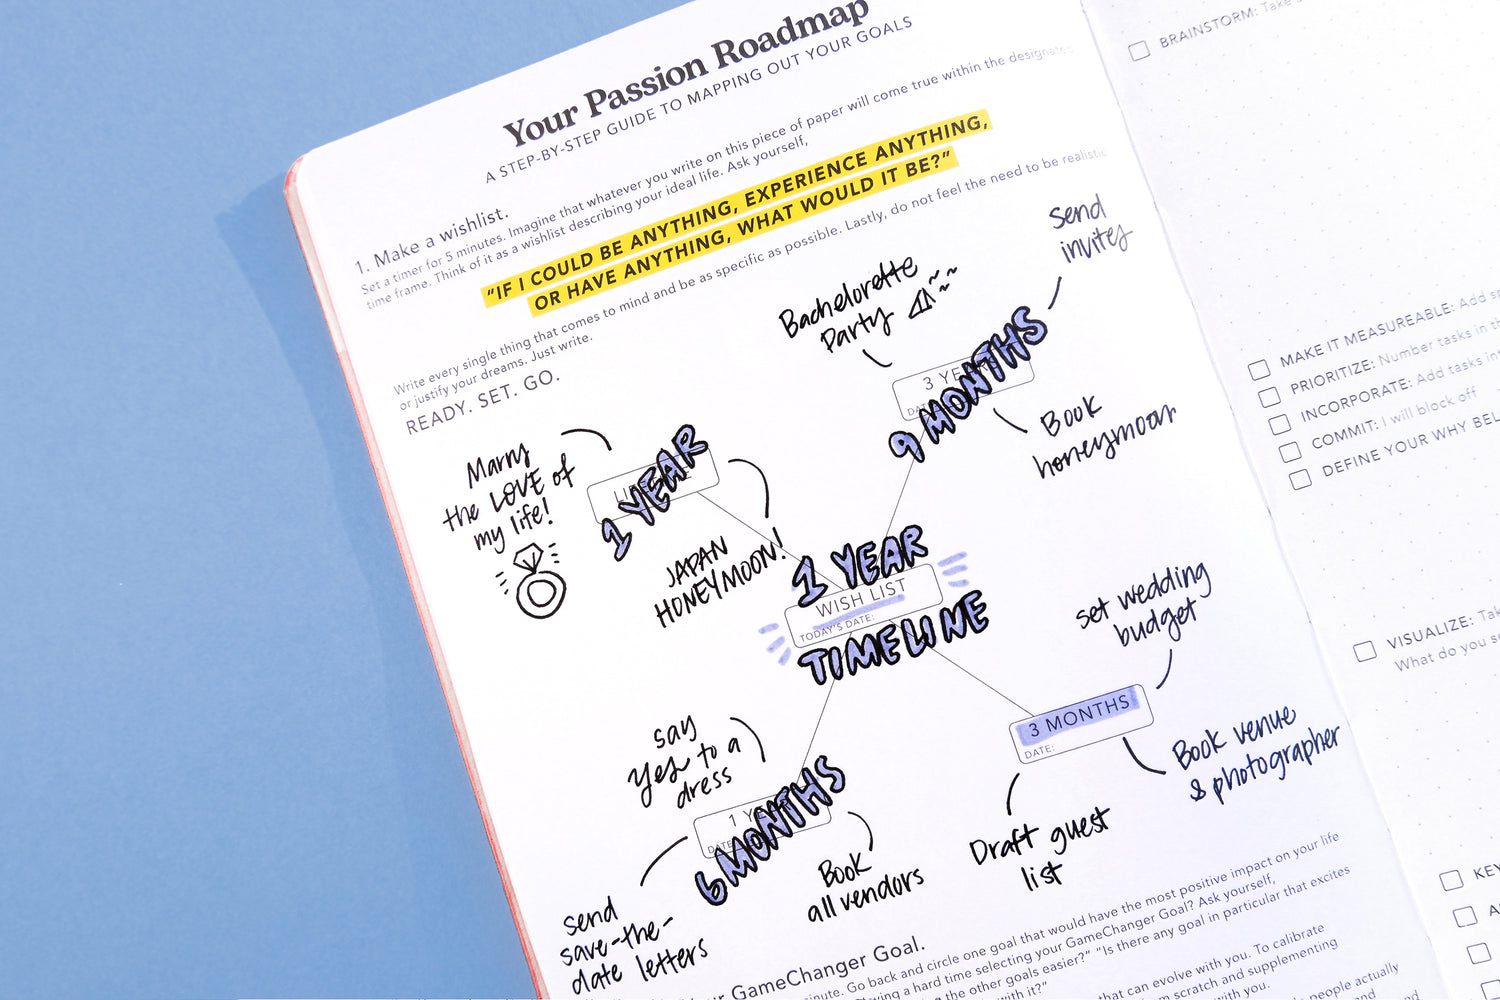 Your Passion Roadmap
A STEP-BY-STEP GUIDE TO MAPPING OUT YOUR GOALS
1. Make a wishlist.
Set a timer for 5 minutes. Imagine that whatever you write on this piece of paper will come true within the designated
time frame. Think of it as a wishlist describing your ideal life. Ask yourself,
"IF I COULD BE ANYTHING, EXPERIENCE ANYTHING,
OR HAVE ANYTHING, WHAT WOULD IT BE?"
Write every single thing that comes to mind and be as specific as possible. Lastly, do not feel the need to be realistic
or justify your dreams. Just write.
READY. SET. GO.
Marry
the LOVE of
my life!
1 YEAR
JAPAN
HONEYMOON!
Bachelorette
Party
send
invites
3
DATE
9 MONTHS
Book
honeymoon
1 YEAR
WISH LIST
TODAY'S DATE:
TIMELINE
set wedding
budget
3 MONTHS
DATE:
Book venue
& photographer
Draft guest
list
say
yes to a
dress
1
DATE
6 MONTHS
Book
all vendors
send
save-the-
date letters
GameChanger Goal.
Go back and circle one goal that would have the most positive impact on your life
a hard time selecting your GameChanger Goal? Ask yourself,
the other goals easier?" "Is there any goal in particular that excites
with it?"
that can evolve with you. To calibrate
scratch and supplementing
with you.
people actually
BRAINSTORM: Take
MAKE IT MEASUREABLE: Add
PRIORITIZE: Number tasks in
INCORPORATE: Add tasks
COMMIT: I will block off
DEFINE YOUR WHY
VISUALIZE:
What do you
KEY